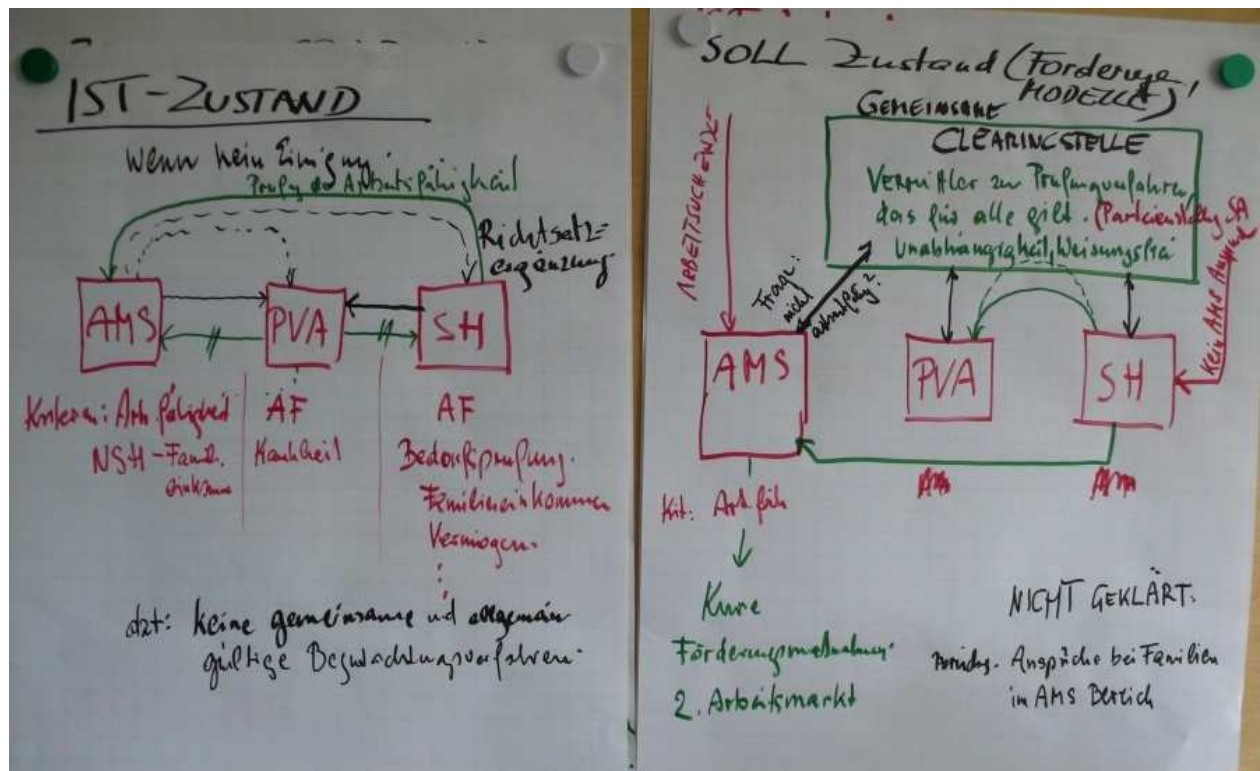 IST-ZUSTAND
Wenn kein Einigung:
Prüfg der Arbeitsfähigkeit
Richtsatz=
ergänzung
AMS
PVA
SH
Kriterien: Arb.fähigkeit
NSH - Famil.
einkomm
AF
Krankheit
AF
Bedarfsprüfung.
Familieneinkommen
Vermögen.
dzt: keine gemeinsame und allgemein
gültige Begutachtungsverfahren.
SOLL Zustand (Forderunge,
MODELLE)
GEMEINSAME
CLEARINGSTELLE
Vermittler zur Prüfungsverfahren,
das für alle gilt. (Parteienstellung SA
Unabhängigkeit, Weisungsfrei
ARBEITSUCHENDE
Frage:
nicht
arbeitsfähig?
Kein AMS Anspruch
AMS
PVA
SH
Krit: Arb.fäh
Kurse
Förderungsmaßnahmen
2. Arbeitsmarkt
NICHT GEKLÄRT:
Ansprüche bei Familien
im AMS Bereich